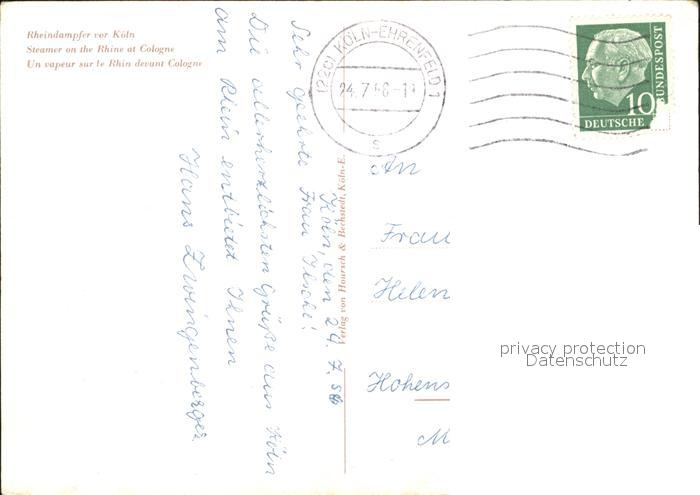 Rheindampfer vor Köln
Steamer on the Rhine at Cologne
Un vapeur sur le Rhin devant Cologne
(22c) KÖLN-EHRENFELD 1
24.7.58-1
c
10
DEUTSCHE
BUNDESPOST
Köln, den 24. 7. 58
Sehr geehrte Frau
Die allerherzlichsten Grüße aus Köln
am Rhein entbietet Ihnen
Hans Zwingenberger
Verlag von Hoursch & Bechstedt, Köln-E.
An
Frau
Helen
Hohens
M
privacy protection
Datenschutz